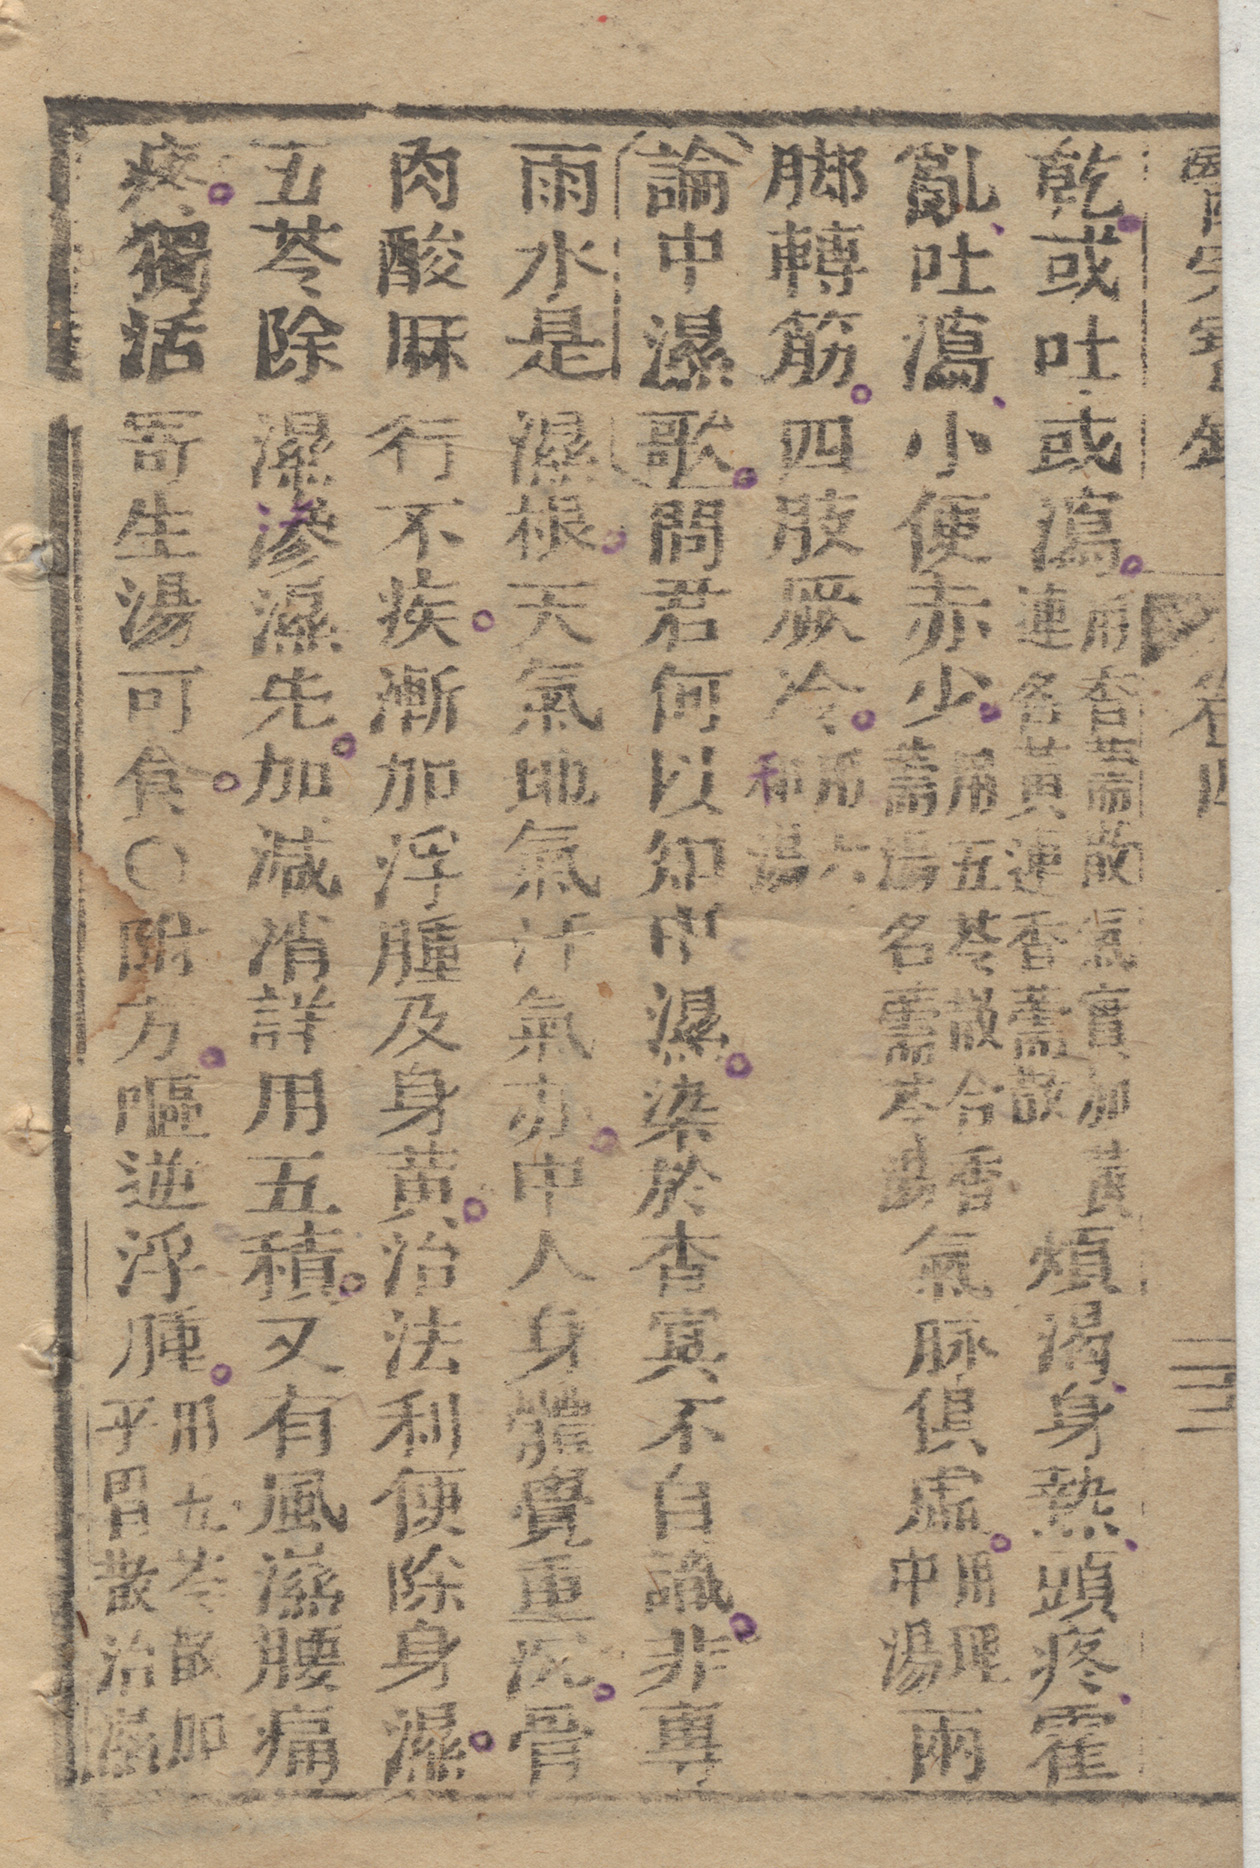 卷四
乾或吐或瀉用杏薷散氣實加黃連名黃連香薷散煩渴身熱頭疼霍
亂吐瀉小便赤少用五苓散合香薷湯名薷苓湯氣脉俱虛用理中湯兩
脚轉筋四肢厥冷用六和湯
論中濕歌問君何以知中濕染於杳冥不自識非專
雨水是濕根天氣地氣汗氣亦中人身體覺重沉骨
肉酸麻行不疾漸加浮腫及身黃治法利便除身濕
五苓除濕滲濕先加減消詳用五積又有風濕腰痛
疼獨活寄生湯可食〇附方嘔逆浮腫用五苓散加平胃散治濕